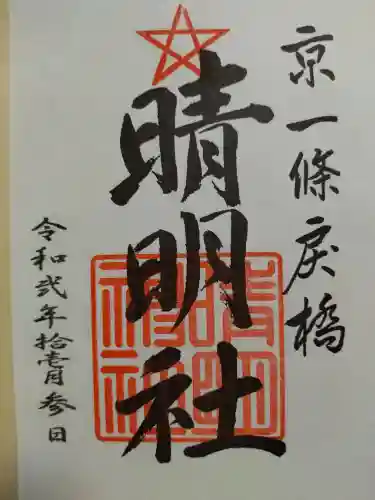 京一條戻橋
晴明社
晴明神社
令和弐年拾壱月参日